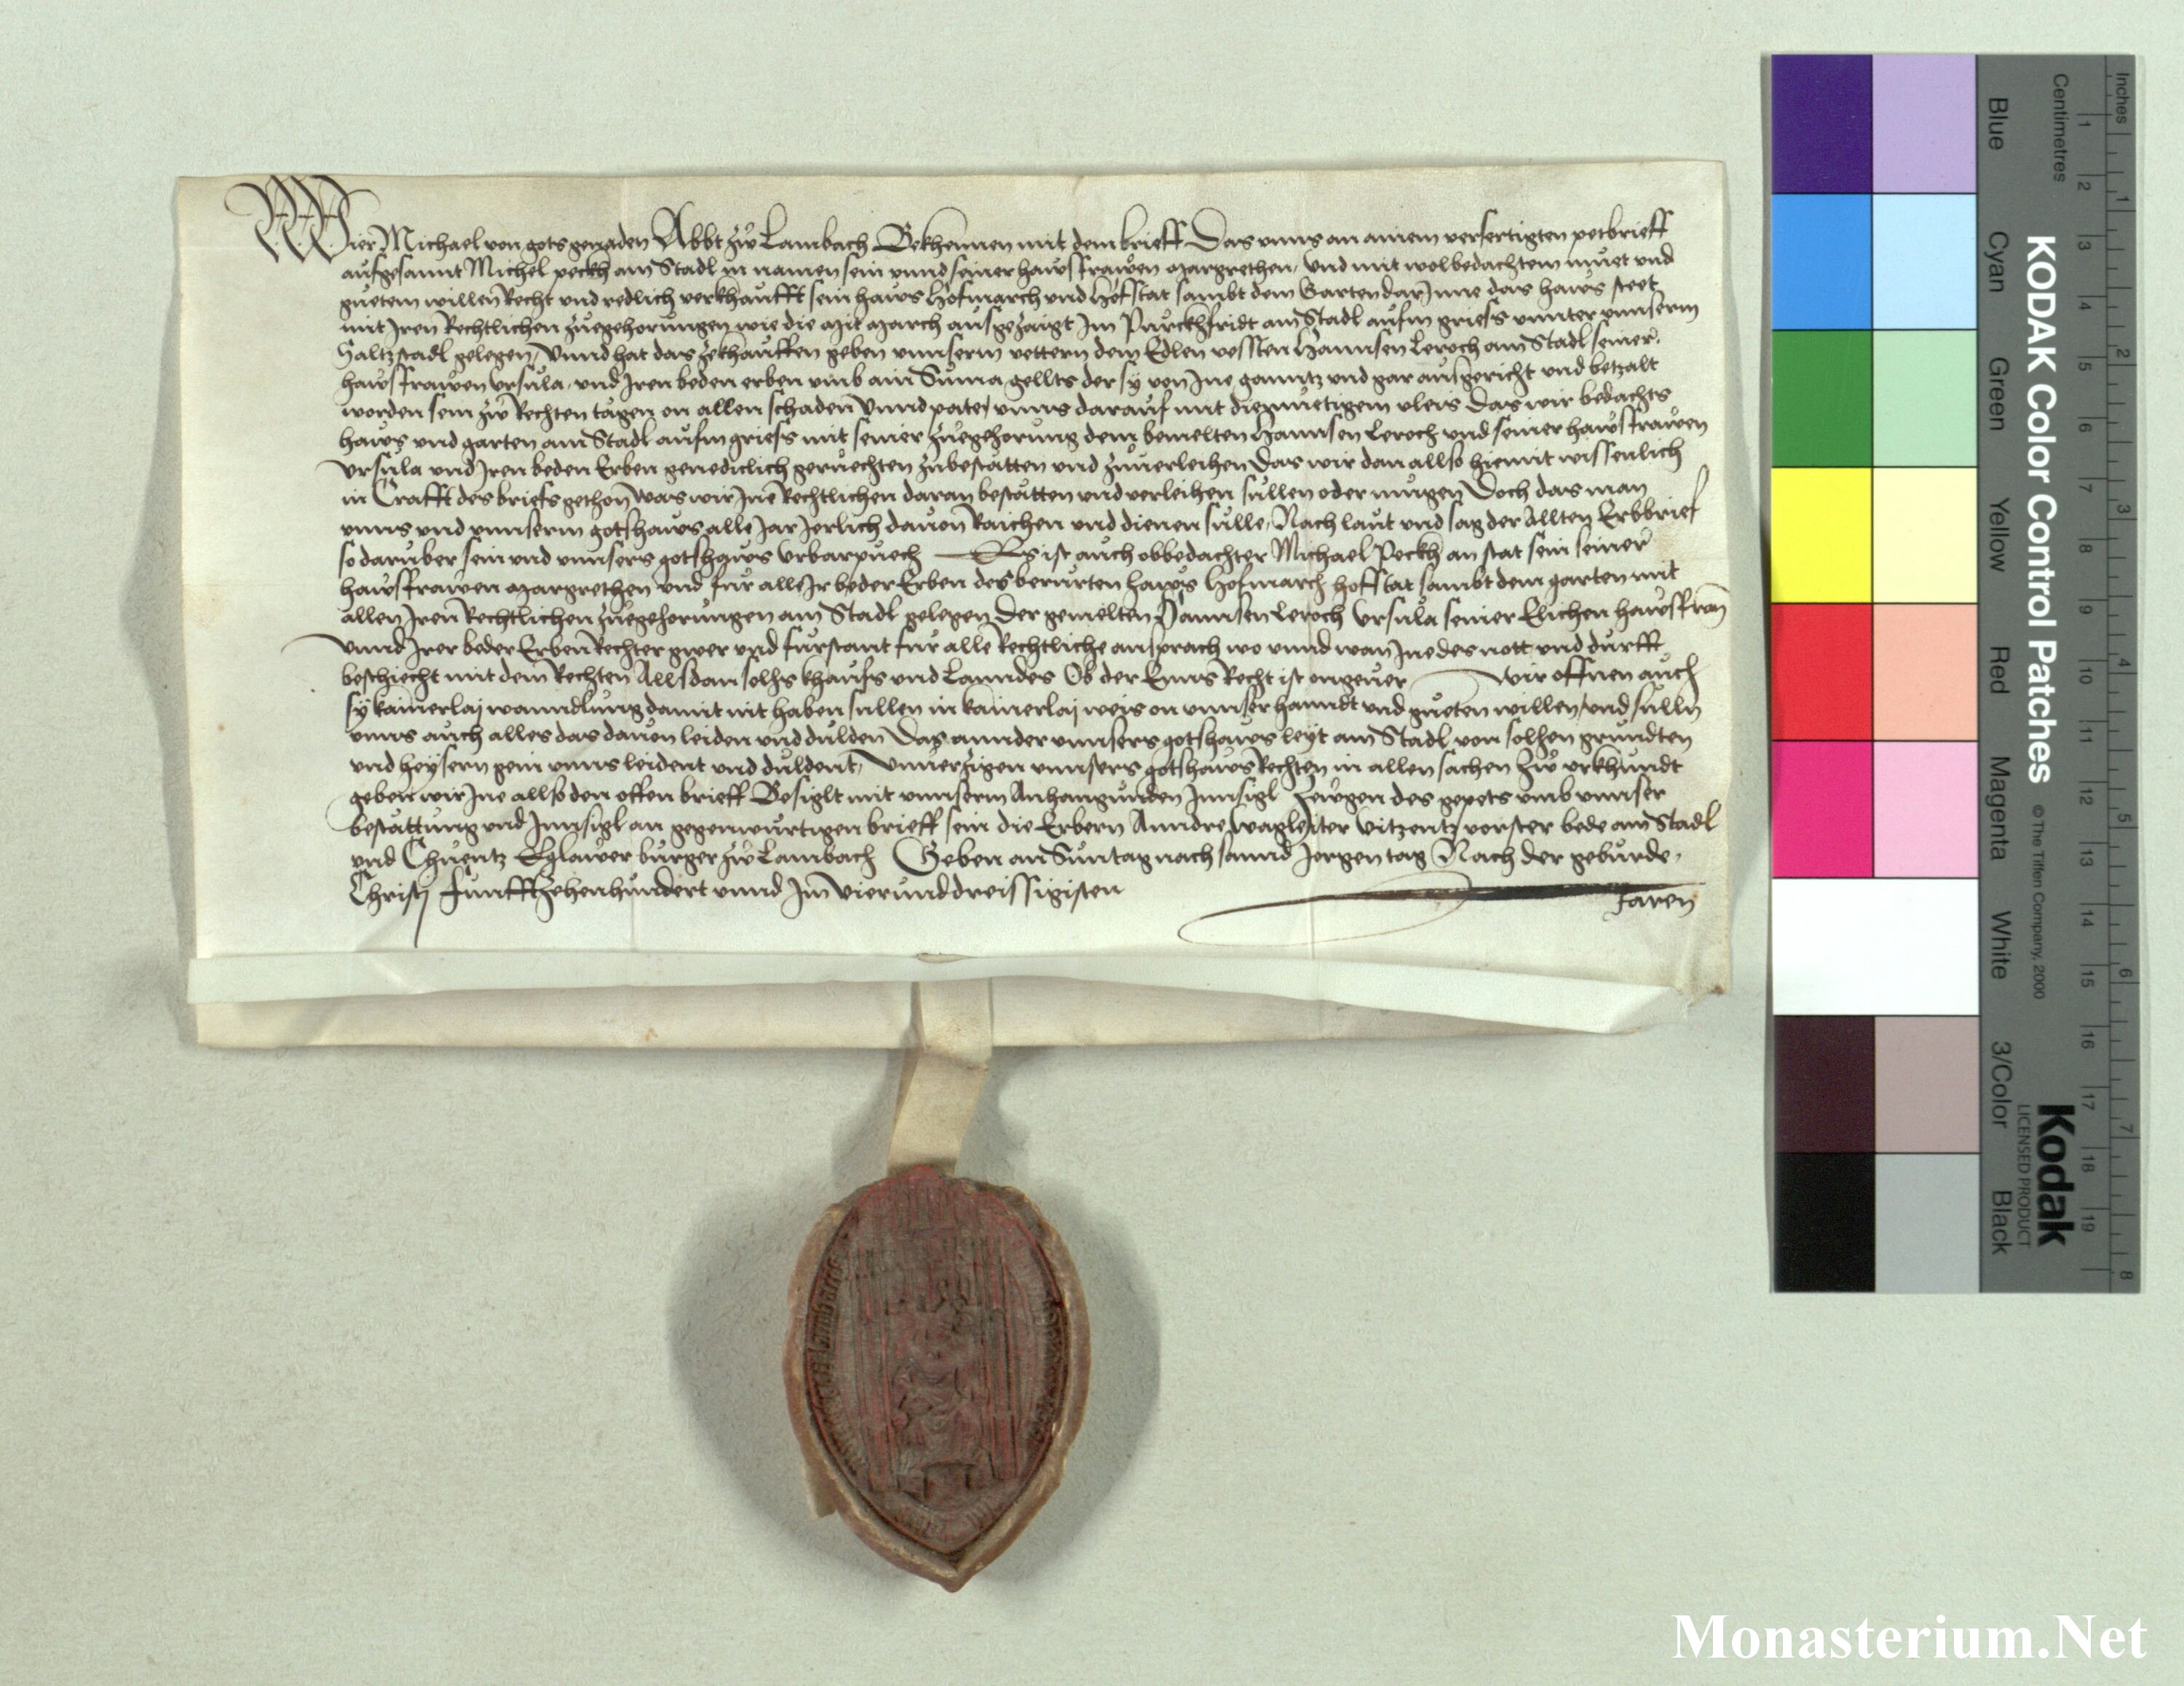 Wier Michael von gots genaden Abbt zw Lambach Bekhennen mit dem brieff Das vnns an ainem verfertigten petbrieff
aufgesannt Michel peckh am Stadl in namen sein vnnd seiner hawsfrawen margrethen, Vnd mit wolbedachtem muet vnd
guetem willen Recht vnd redlich verkhaufft sein haws Hofmarch vnd Hofstat sambt dem Garten darJnne das haws steet
mit Jren Rechtlichen zuegehorungen wie die mit march ausgezaigt Jm Purckhfridt am Stadl aufm griess vnnter vnnserm
Saltzstadl gelegen, Vnnd hat das zekhauffen geben vnnserm vettern dem Edlen vessten Hannsen Leroch am Stadl seiner
hawsfrawen Vrsula, vnd Jren beden erben vmb ain Suma gellts der sy von Jne ganntz vnd gar ausgericht vnd betzalt
worden sein zw Rechten tagen on allen schaden Vnnd pate, vnns darauf mit diemuetigem vleis Das wir bedachts
haws vnd garten am Stadl aufm griess mit seiner zuegehorung dem bemelten Hannsen Leroch vnd seiner hawsfrawen
Vrsula vnd Jren beden Erben genediclich geruechten zubestatten vnd zuuerleihen Das wir dan allso hiemit wissenlich
in Crafft des briefs gethon Was wir Jne Rechtlichen daran bestatten vnd verleihen sullen oder mugen Doch das man
vnns vnd vnnserm gotshaws alle Jar Jerlich dauon Raichen vnd dienen sulle, Nach laut vnd sag der Allten Erbbrief
so daruber sein vnd vnnsers gotshaws Vrbarpuech Es ist auch obbedachter Michael Peckh an stat sein seiner
hawsfrawen margrethen vnd fur alle Jr beder Erben des berurten haws Hofmarch hofstat sambt dem garten mit
allen Jren Rechtlichen zuegehorungen am Stadl gelegen Der gemelten Hannsen Leroch Vrsula seiner Elichen hawsfraw
Vnnd Jrer beder Erben Rechter gwer vnd furstant fur alle Rechtliche ansprach wo vnnd wan Jne des nott vnd durfft
beschiecht mit dem Rechten Allsdan solhs khaufs vnd Lanndes Ob der Enns Recht ist ongeuer Wir offnen auch
sy kainerlaj wanndlung damit nit haben sullen in kainerlaj weis on vnnser hanndt vnd gueten willen, vnd sulln
vnns auch alles das dauon leiden vnd dulden Das annder vnnsers gotshaws leyt am Stadl von solhen grundten
vnd heysern gein vnns leident vnd duldent, Vnuerzigen vnnsers gotshaws Rechten in allen sachen Zw vrkhundt
geben wir Jne allso den offen brieff Besiglt mit vnnserm Anhangunden Jnnsigl Zewgen des gepets vmb vnnser
bestattung vnd Jnnsigl an gegenwurtigen brieff sein die Erbern Anndre Wagleiter Vitzentz vorster bede am Stadl
vnd Chuentz Eglawer burger zw Lambach Geben an Suntag nach sannd Jorgen tag Nach der geburde
Christj Funffzehenhundert vnnd Jm Vierunddreissigisten Jaren
KODAK Color Control Patches
© The Tiffen Company, 2000
Kodak
LICENSED PRODUCT
Inches
Centimetres
1 2 3 4 5 6 7 8 9 10 11 12 13 14 15 16 17 18 19
1 2 3 4 5 6 7 8
Blue Cyan Green Yellow Red Magenta White 3/Color Black
Monasterium.Net